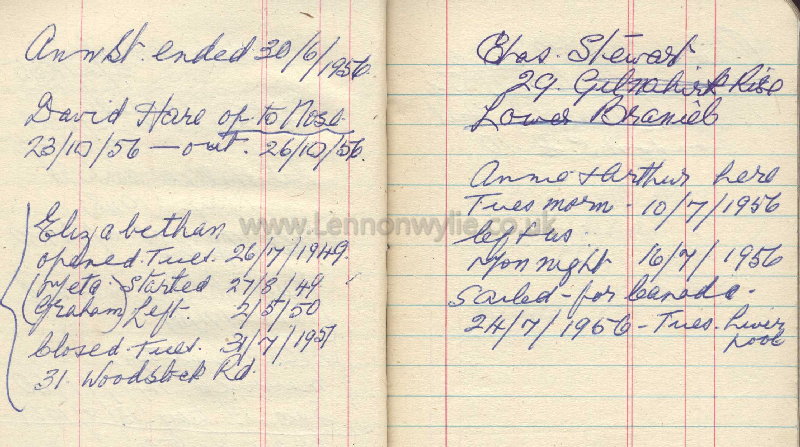 Ann St. ended 30/6/1956.
David Hare op. to Nose
23/10/56 — out. 26/10/56.
Elizabethan
opened. Tues. 26/7/1949.
(Meta Started 27/8/49
Graham) Left. 2/5/50
Closed. Tues. 31/7/1951
31. Woodstock Rd.
Chas. Stewart
29. Gilnahirk Rise
Lower Braniel
Annie & Arthur here
Tues morn - 10/7/1956
left us
Mon night 16/7/1956
Sailed - for Canada.
24/7/1956 - Tues. Liver
pool
www.Lennonwylie.co.uk